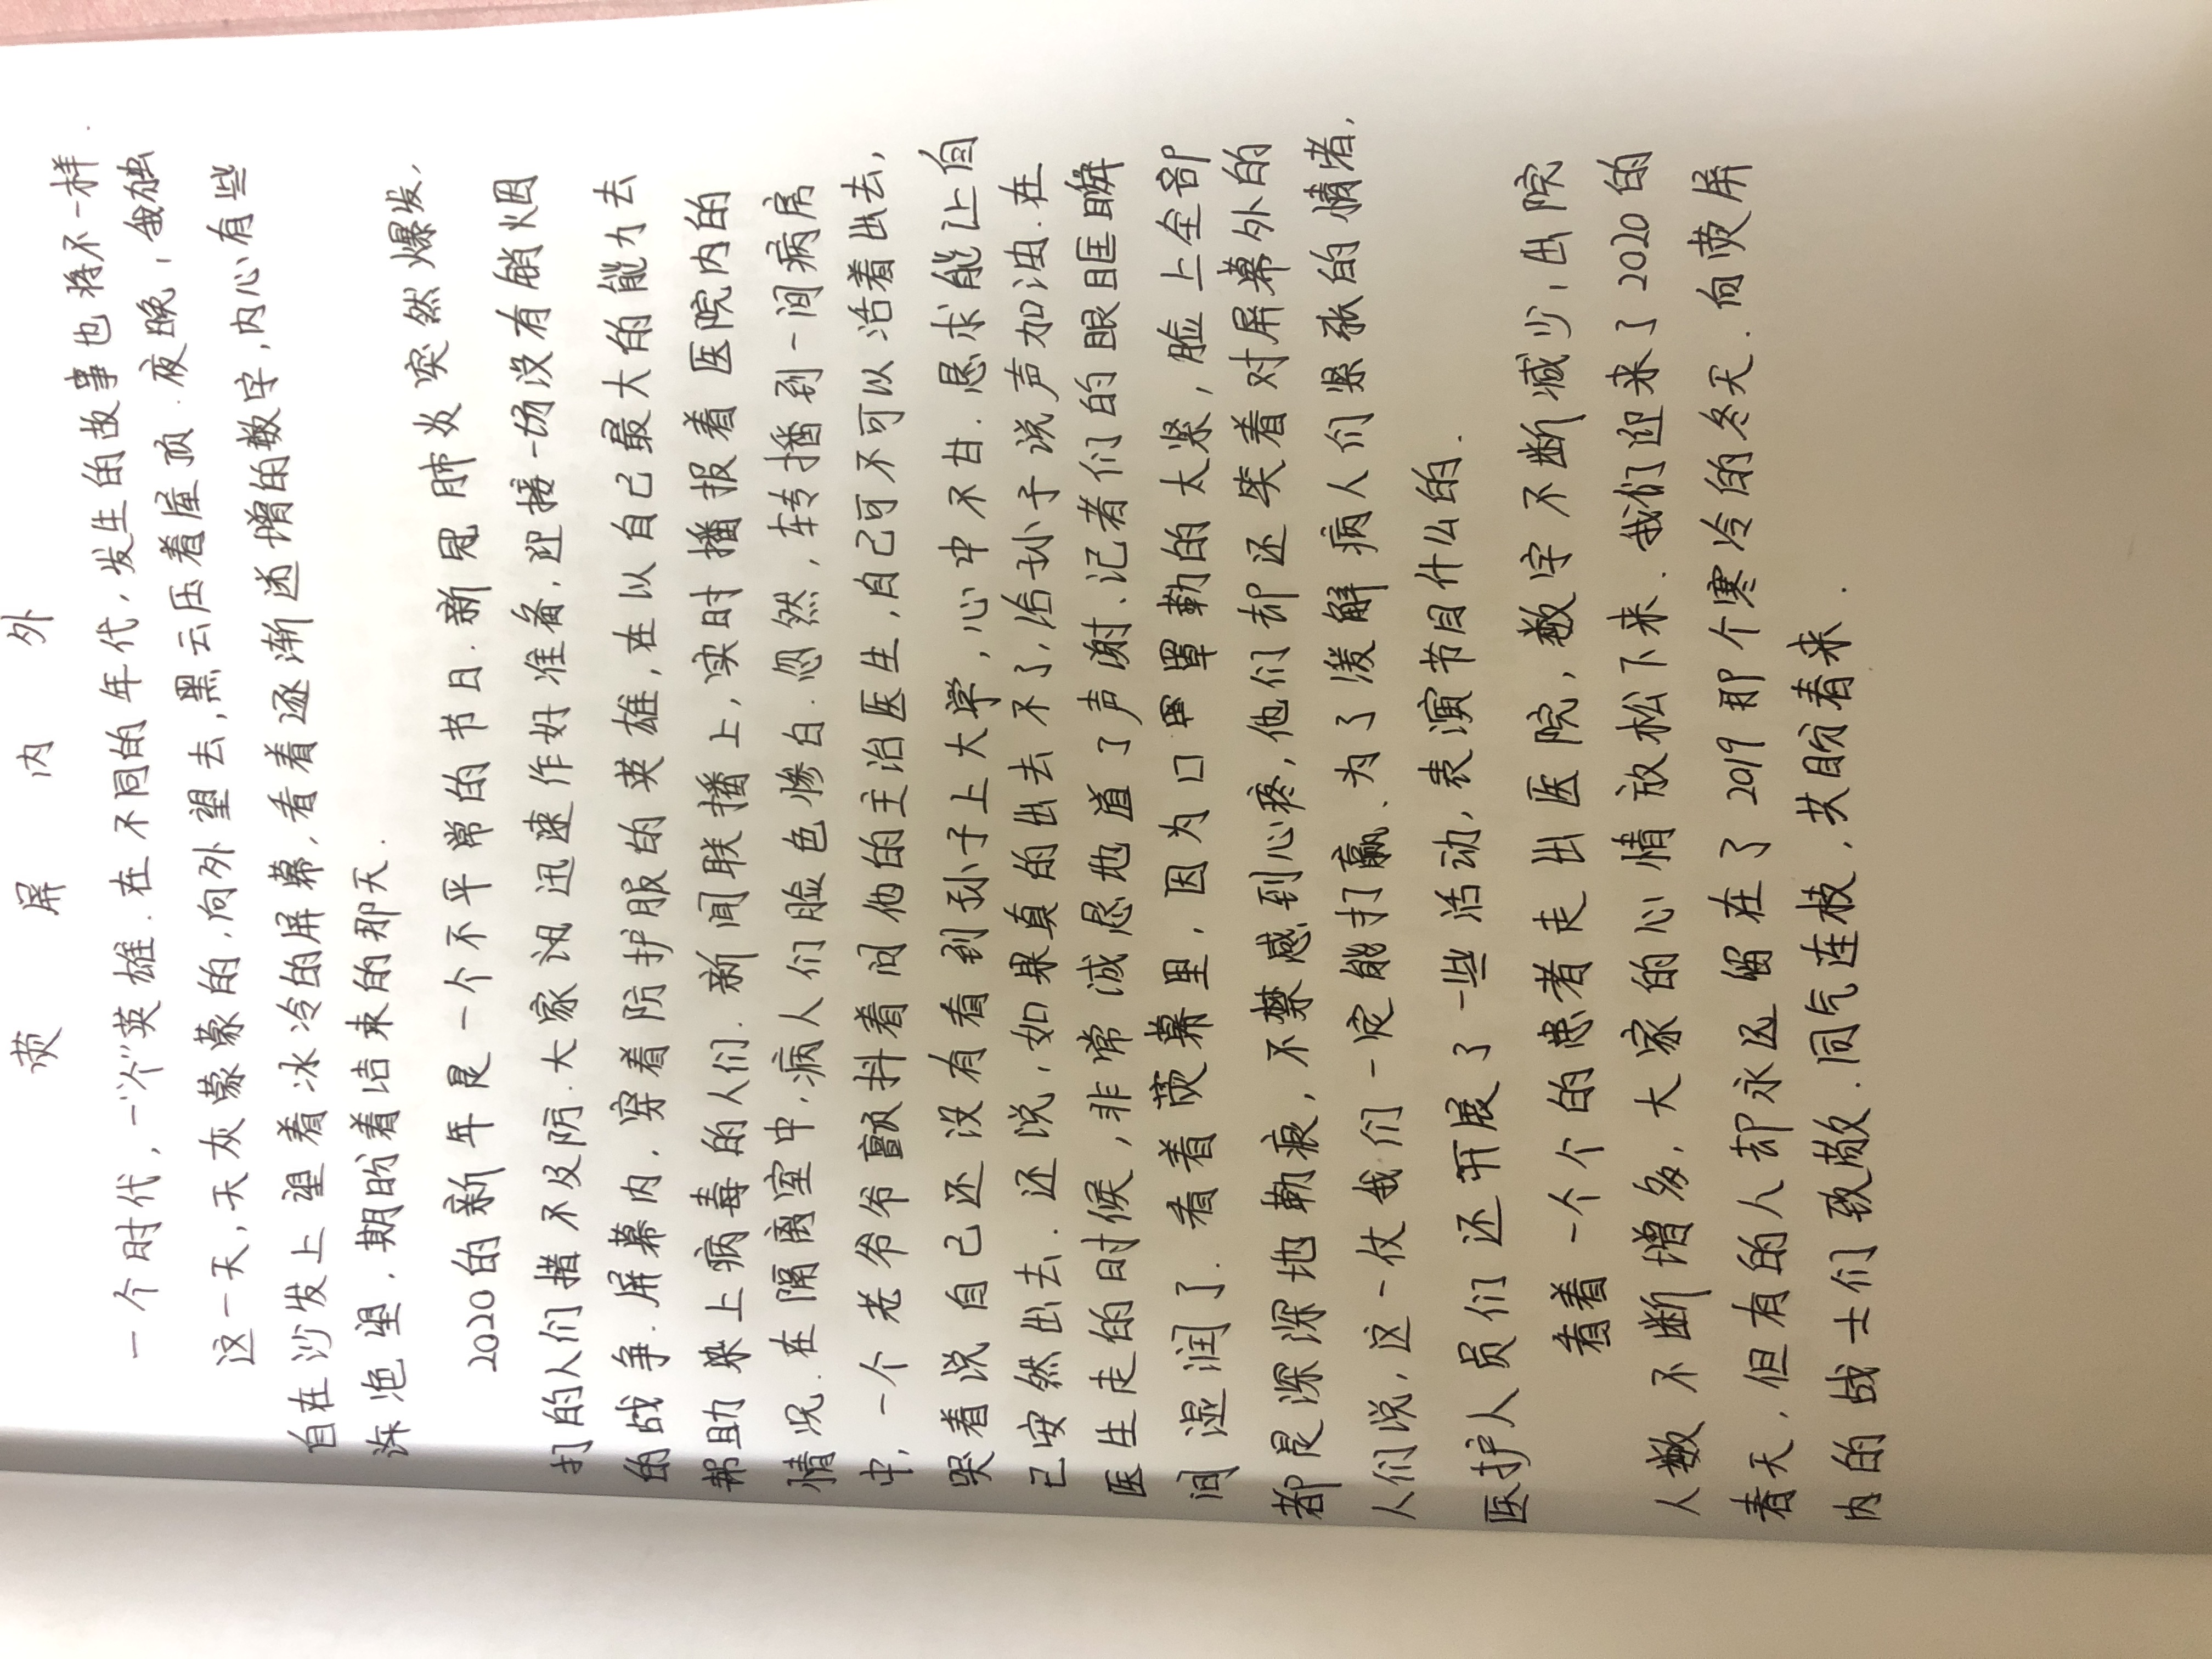 荧 屏 内 外
一个时代,一“个”英雄.在不同的年代,发生的故事也将不一样.
这一天,天灰蒙蒙的,向外望去,黑云压着屋顶.夜晚,我独
自在沙发上望着冰冷的屏幕,看着逐渐递增的数字,内心有些
深绝望,期盼着结束的那天.
2020的新年是一个不平常的节日.新冠肺炎突然爆发,
打的人们措不及防.大家迅速作好准备,迎接一场没有硝烟
的战争.屏幕内,穿着防护服的英雄,在以自己最大的能力去
帮助染上病毒的人们.新闻联播上,实时播报着医院内的
情况.在隔离室中,病人们脸色惨白.忽然,转播到一间病房
中,一个老爷爷颤抖着问他的主治医生,自己可不可以活着出去,
哭着说自己还没有看到孙子上大学,心中不甘.恳求能让自
己安然出去.还说,如果真的出去不了,给孙子说声加油.在
医生走的时候,非常诚恳地道了声谢.记者们的眼眶瞬
间湿润了.看着荧幕里,因为口罩勒的太紧,脸上全部
都是深深地勒痕,不禁感到心疼,他们却还笑着对屏幕外的
人们说,这一仗我们一定能打赢、为了缓解病人们紧张的情绪,
医护人员们还开展了一些活动,表演节目什么的.
看着一个个的患者走出医院,数字不断减少,出院
人数不断增多,大家的心情放松下来.我们迎来了2020的
春天,但有的人却永远留在了2019那个寒冷的冬天.向荧屏
内的战士们致敬.同气连枝,共盼春来.